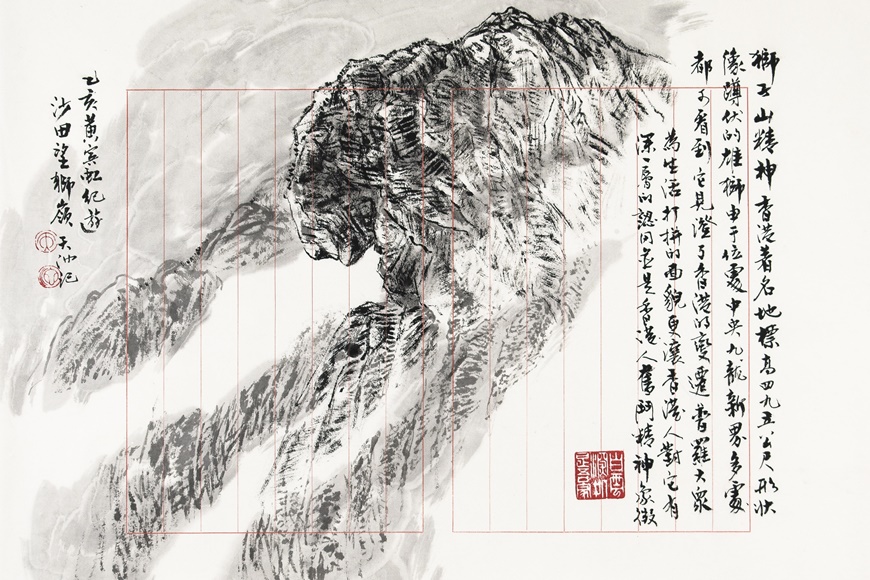 獅子山精神香港著名地標高四九五公尺形狀
像蹲伏的雄獅由于位處中央九龍新界多處
都可看到它見證了香港的變遷普羅大眾
為生活打拼的面貌更讓香港人對它有
深一層的認同並是香港人奮鬥精神象徵
乙亥黃賓虹紀遊
沙田望獅嶺